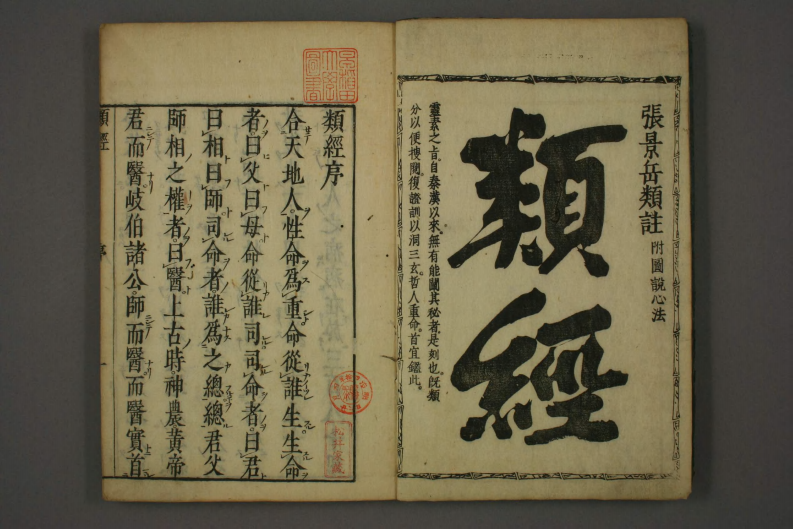 張景岳類註 附圖說心法
類經
靈素之旨自秦漢以來無有能闡其秘者是刻也既類
分以便搜閱復證訓以洞三玄哲人重命首宜鑑此
類經序
合天地人性命為重命從誰生生命
者曰父曰母命從誰司司命者曰君
曰相曰師司命者誰為之總總君父
師相之權者曰醫上古時神農黃帝
君而醫岐伯諸公師而醫而醫實首
類經
序